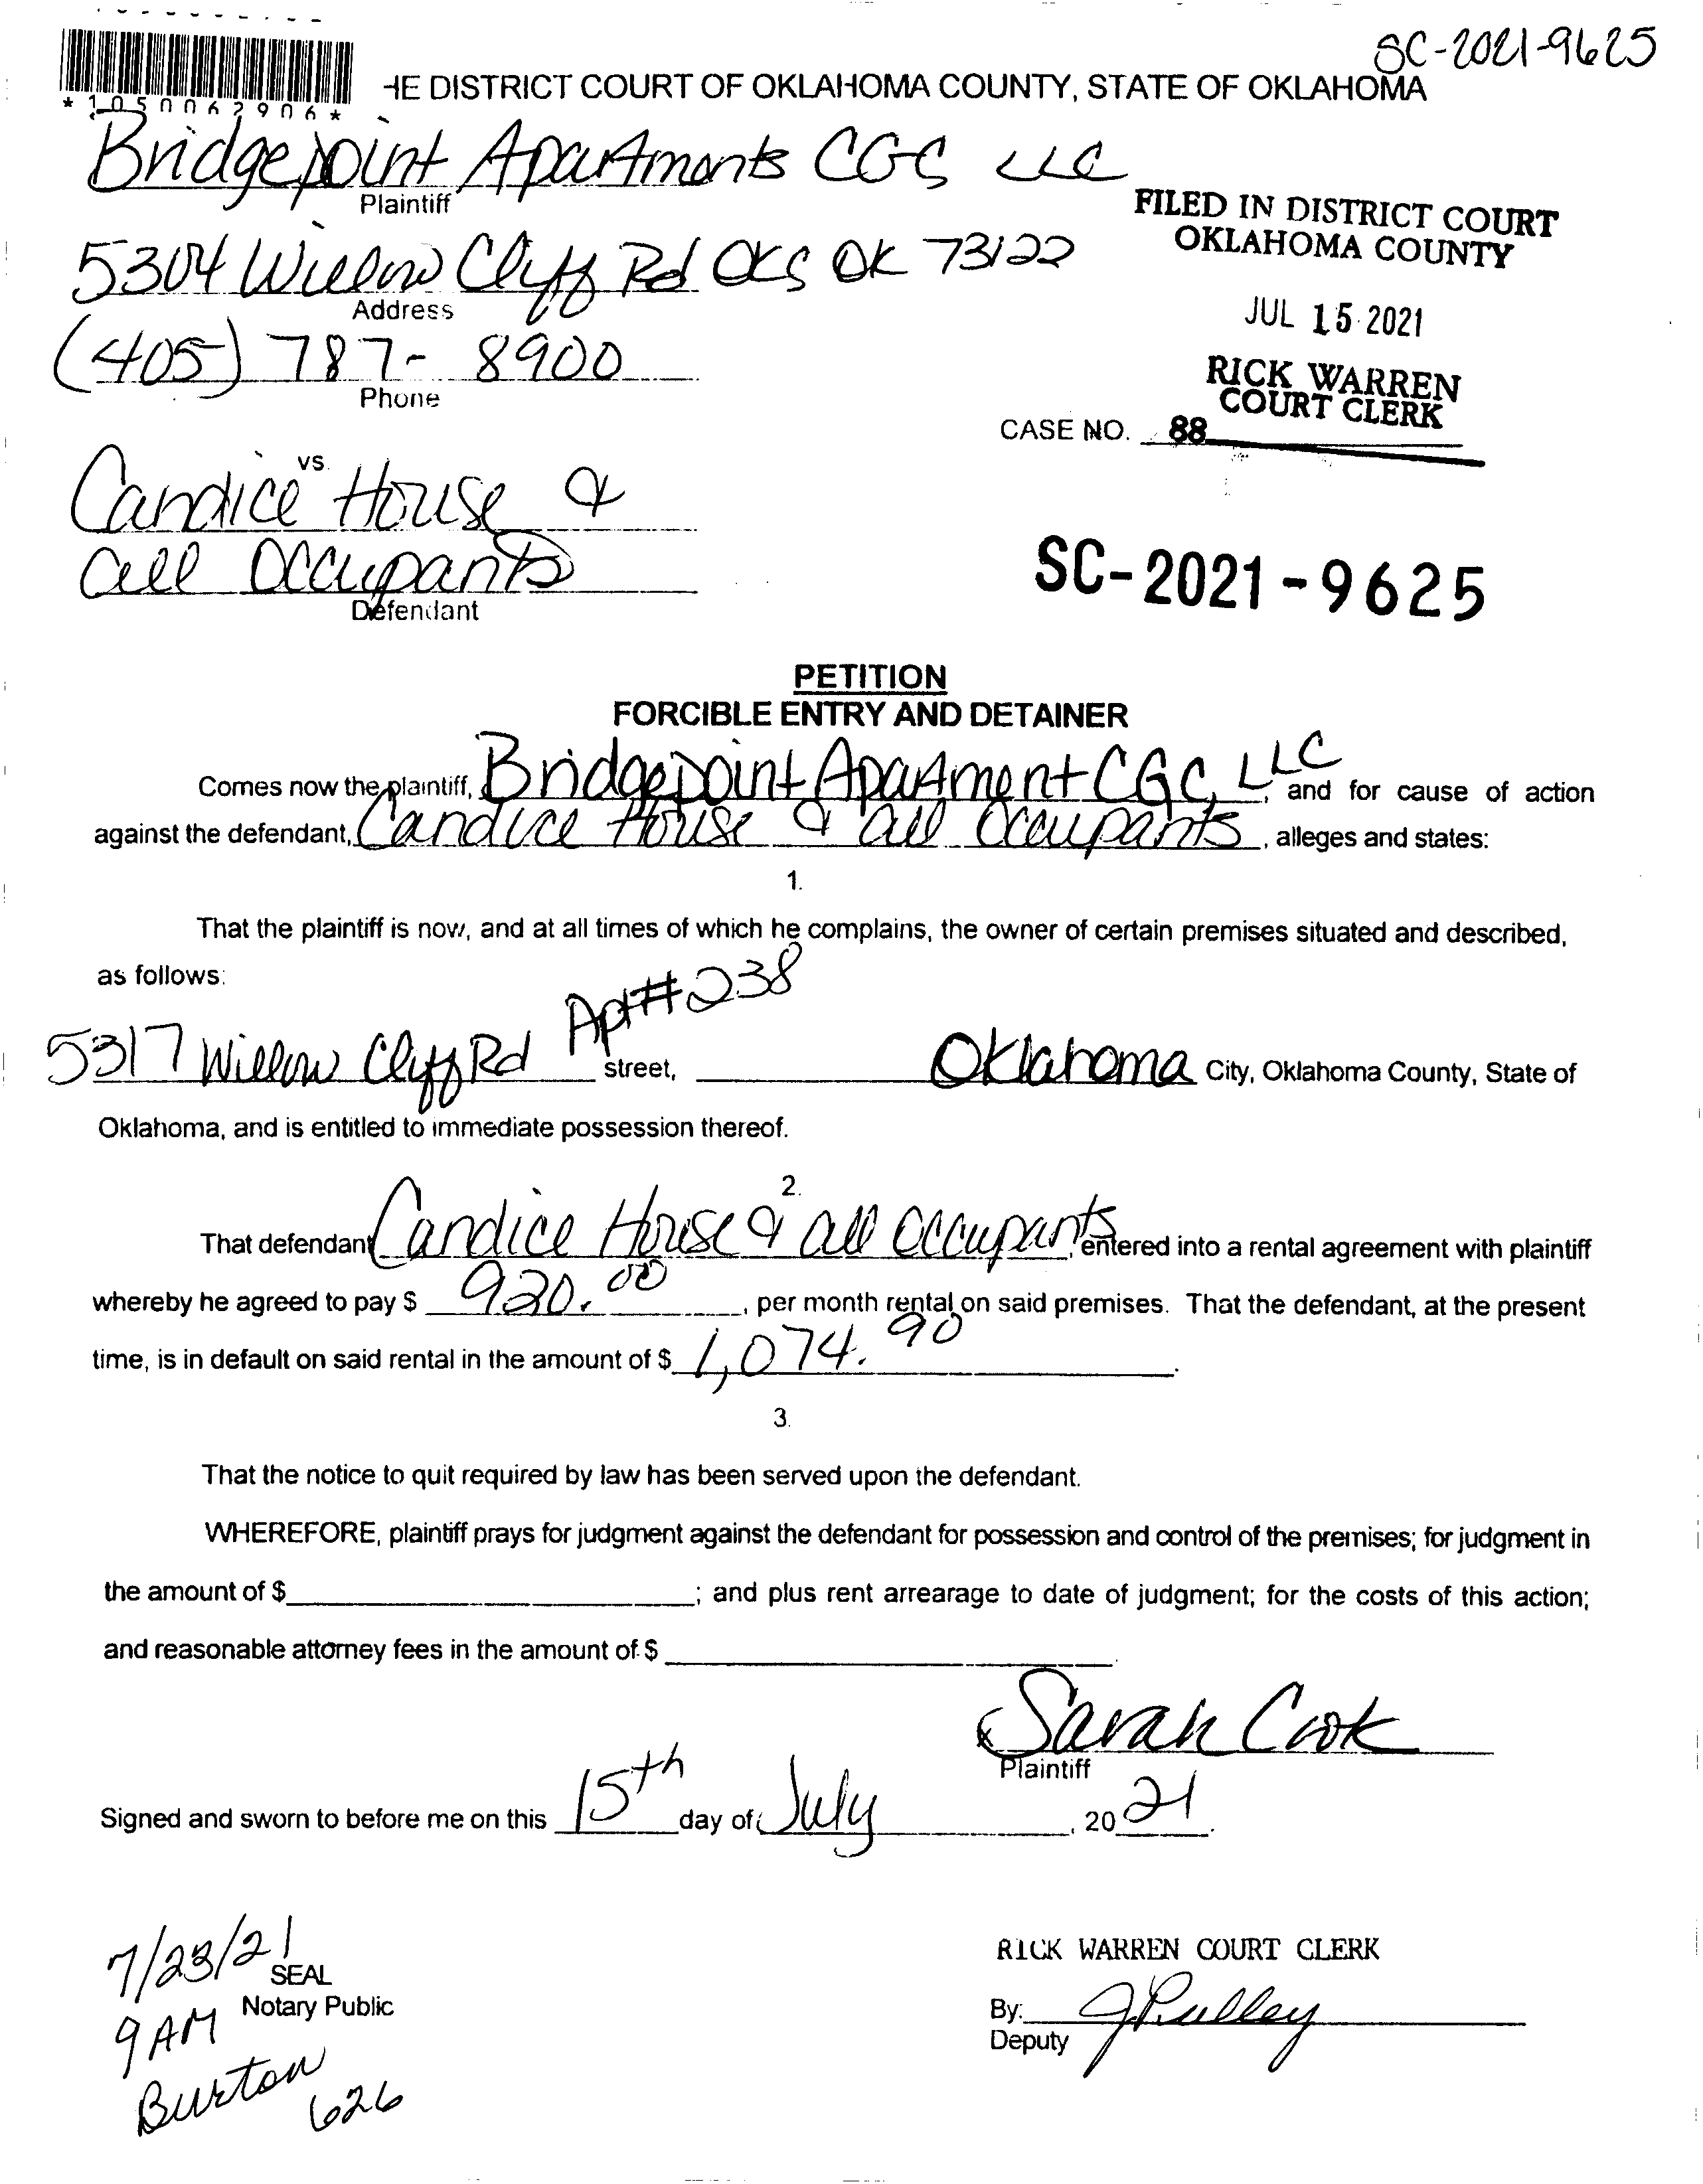 SC-2021-9625
*1050062906*
HE DISTRICT COURT OF OKLAHOMA COUNTY, STATE OF OKLAHOMA
Bridgepoint Apartments CGC LLC
Plaintiff
FILED IN DISTRICT COURT
OKLAHOMA COUNTY
5304 Willow Cliff Rd OKC OK 73122
Address
JUL 15 2021
(405) 787-8900
Phone
RICK WARREN
COURT CLERK
CASE NO. 88
vs.
Candice House &
all Occupants
Defendant
SC-2021-9625
PETITION
FORCIBLE ENTRY AND DETAINER
Comes now the plaintiff, Bridgepoint Apartment CGC, LLC, and for cause of action
against the defendant, Candice House & all Occupants, alleges and states:
1.
That the plaintiff is now, and at all times of which he complains, the owner of certain premises situated and described,
as follows:
5317 Willow Cliff Rd Apt#238 street, Oklahoma City, Oklahoma County, State of
Oklahoma, and is entitled to immediate possession thereof.
2.
That defendant Candice House & all Occupants, entered into a rental agreement with plaintiff
whereby he agreed to pay $ 920.00, per month rental on said premises. That the defendant, at the present
time, is in default on said rental in the amount of $ 1,074.90.
3.
That the notice to quit required by law has been served upon the defendant.
WHEREFORE, plaintiff prays for judgment against the defendant for possession and control of the premises; for judgment in
the amount of $ ; and plus rent arrearage to date of judgment; for the costs of this action;
and reasonable attorney fees in the amount of $ .
x Sarah Cook
Plaintiff
Signed and sworn to before me on this 15th day of July, 2021.
7/23/21
SEAL
Notary Public
9AM
Burton
626
RICK WARREN COURT CLERK
By: J Pulley
Deputy